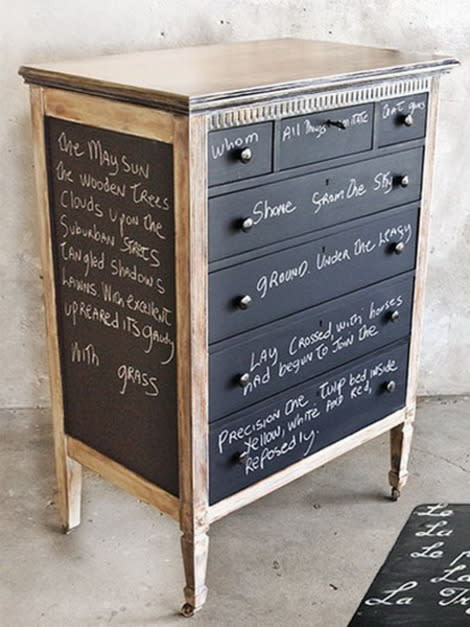 The May Sun
The Wooden Trees
Clouds upon the
Suburban Streets
Tangled Shadows
Lawns. With excellent
upreared its gaudy
With grass
whom
All Things imitate
That gem
Shone from the Sky
GROUND. Under the Leafy
LAY Crossed, with horses
had begun to Join the
Precision the Tulip bed inside
Yellow, White and Red,
Reposedly.
La
Le
La